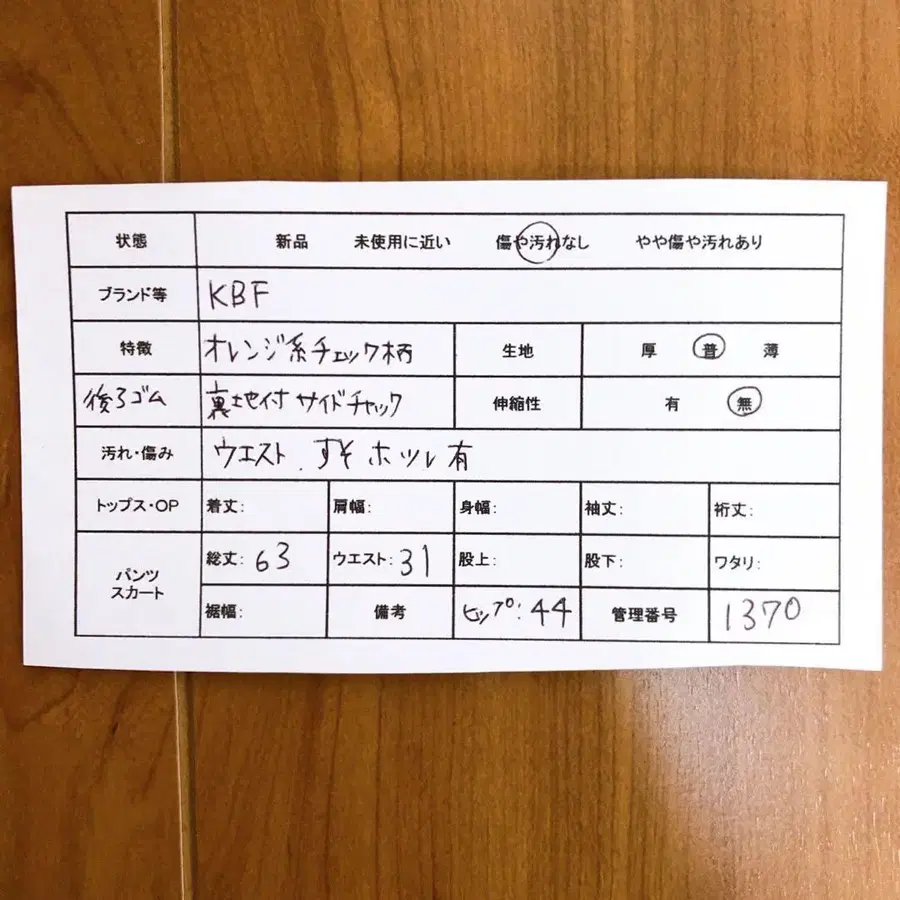 状態 新品 未使用に近い 傷や汚れなし やや傷や汚れあり
ブランド等 KBF
特徴 オレンジ系チェック柄 生地 厚 普 薄
後ろゴム 裏地付 サイドチャック 伸縮性 有 無
汚れ・傷み ウエスト. すそ ホツレ 有
トップス・OP 着丈: 肩幅: 身幅: 袖丈: 裄丈:
パンツ スカート 総丈: 63 ウエスト: 31 股上: 股下: ワタリ:
裾幅: 備考 ヒップ: 44 管理番号 1370